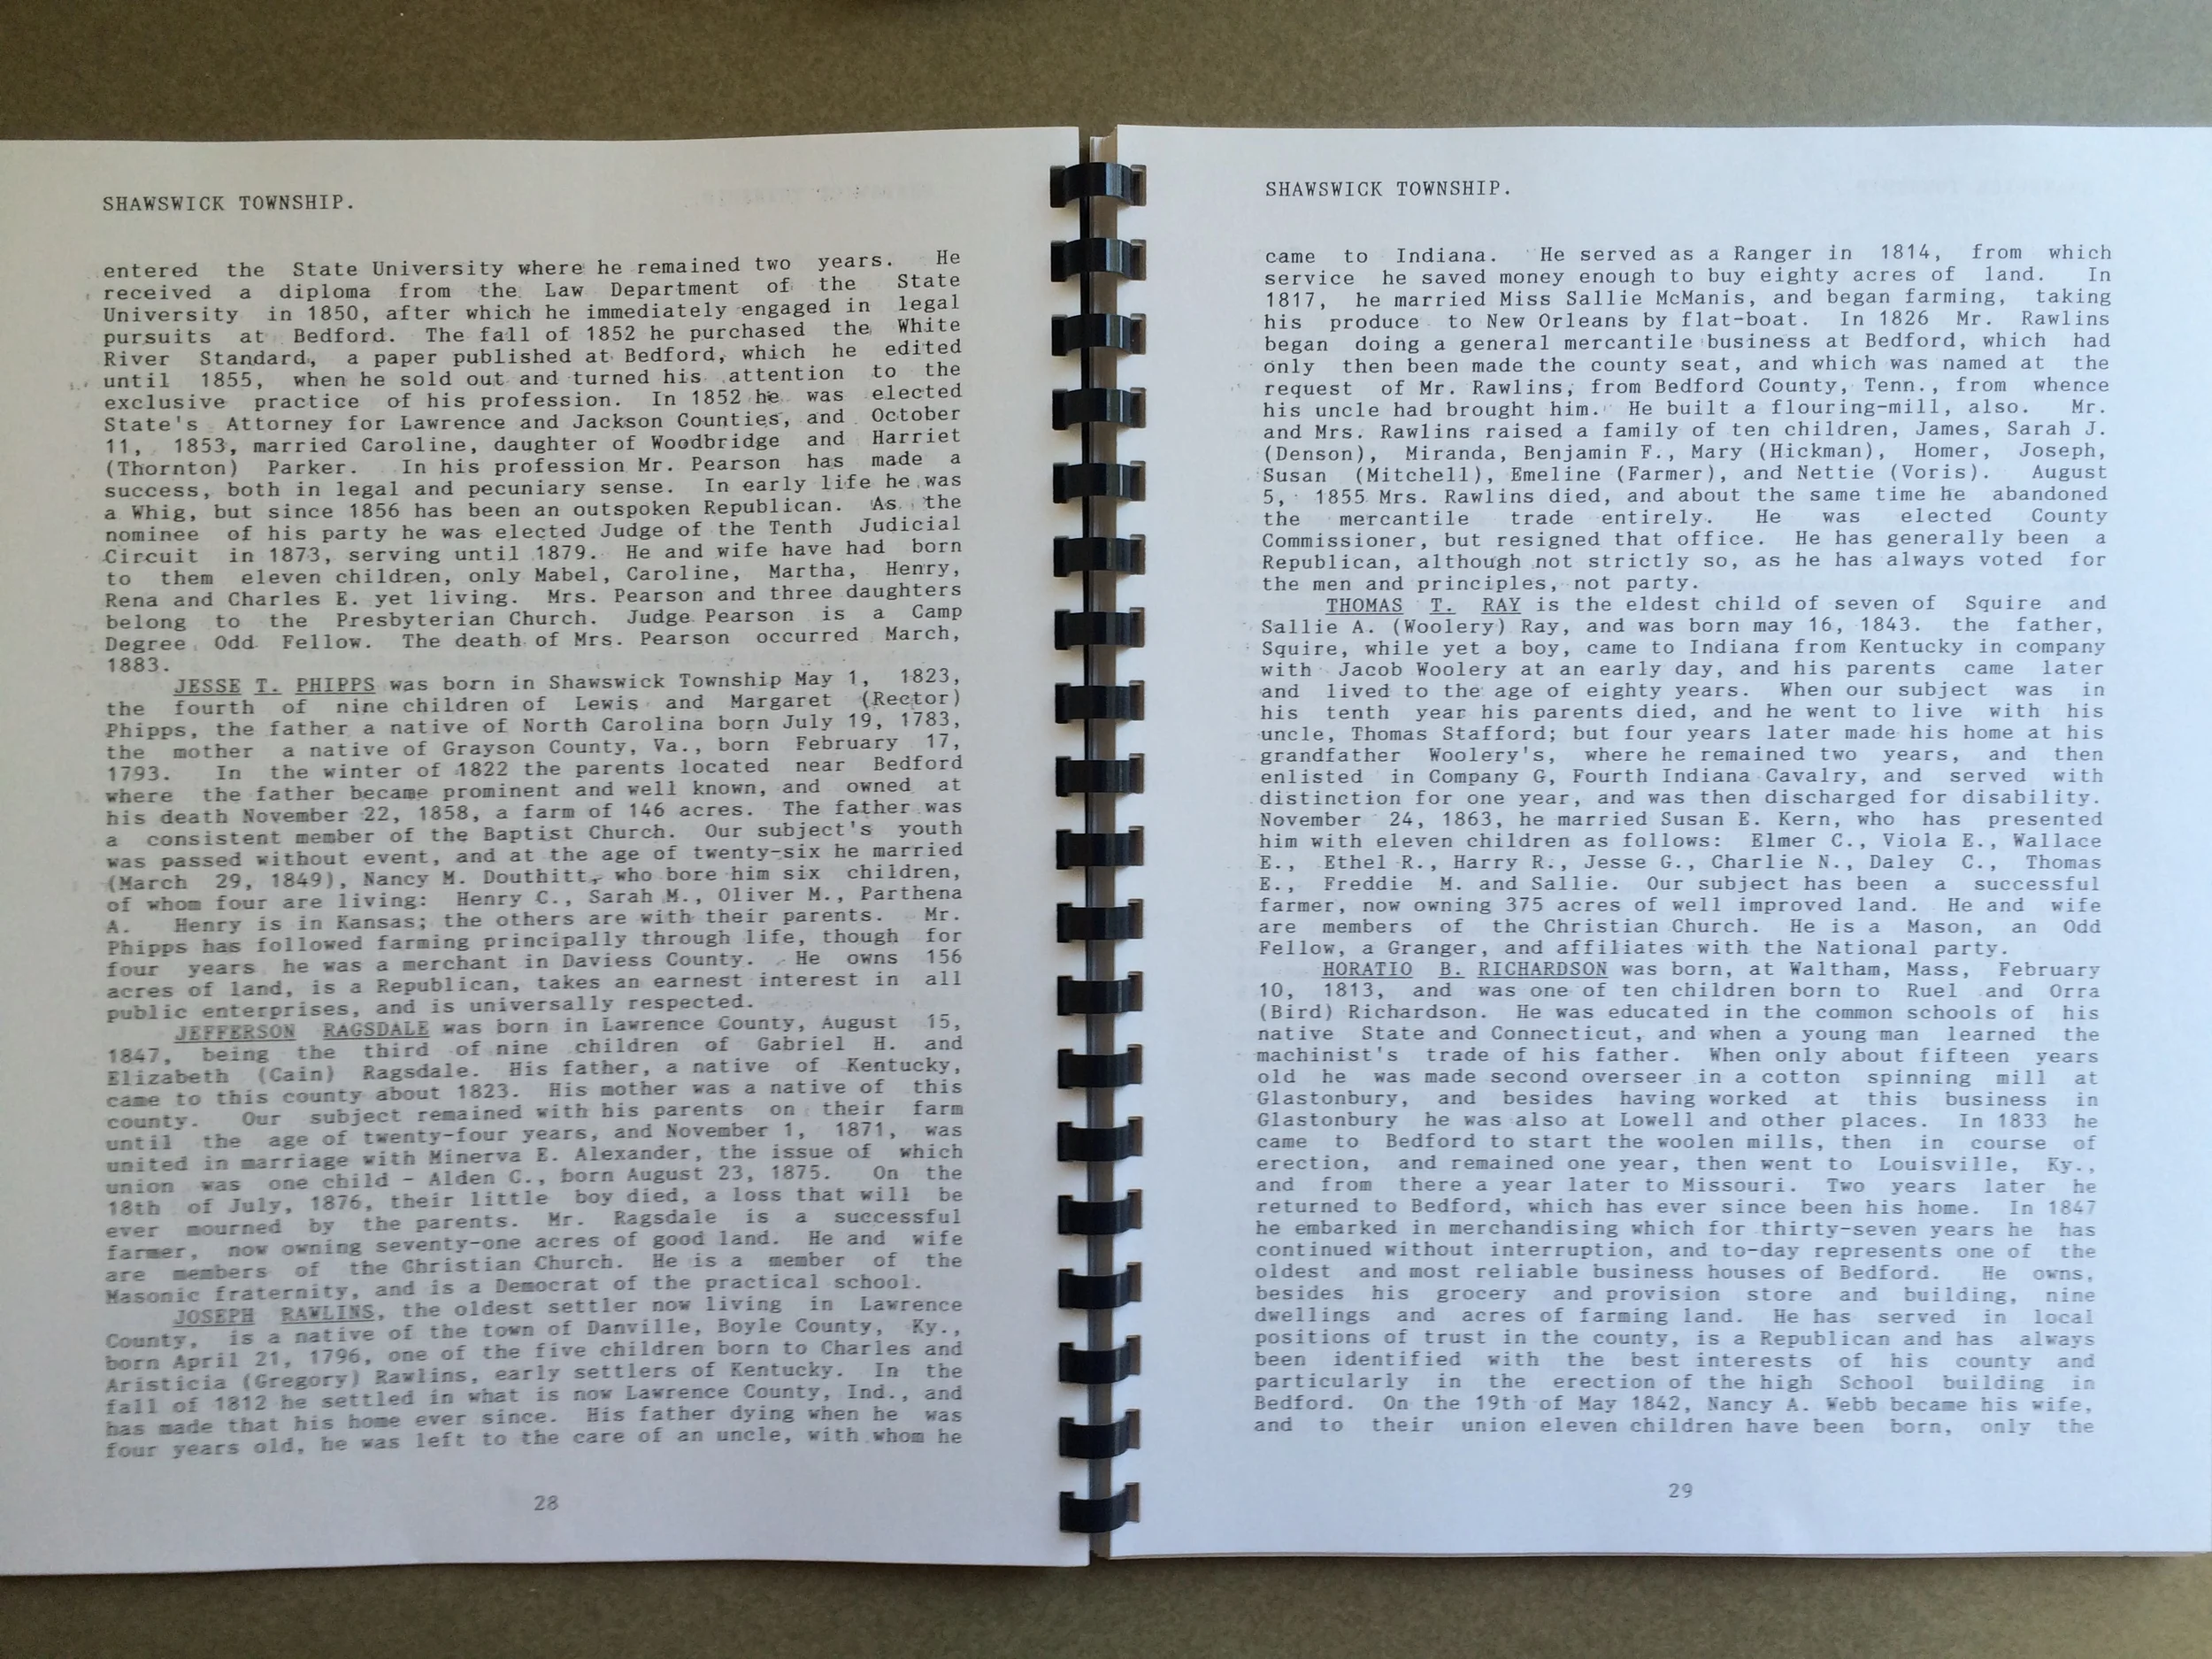 SHAWSWICK TOWNSHIP.
entered the State University where he remained two years. He
received a diploma from the Law Department of the State
University in 1850, after which he immediately engaged in legal
pursuits at Bedford. The fall of 1852 he purchased the White
River Standard, a paper published at Bedford, which he edited
until 1855, when he sold out and turned his attention to the
exclusive practice of his profession. In 1852 he was elected
State's Attorney for Lawrence and Jackson Counties, and October
11, 1853, married Caroline, daughter of Woodbridge and Harriet
(Thornton) Parker. In his profession Mr. Pearson has made a
success, both in legal and pecuniary sense. In early life he was
a Whig, but since 1856 has been an outspoken Republican. As the
nominee of his party he was elected Judge of the Tenth Judicial
Circuit in 1873, serving until 1879. He and wife have had born
to them eleven children, only Mabel, Caroline, Martha, Henry,
Rena and Charles E. yet living. Mrs. Pearson and three daughters
belong to the Presbyterian Church. Judge Pearson is a Camp
Degree Odd Fellow. The death of Mrs. Pearson occurred March,
1883.
JESSE T. PHIPPS was born in Shawswick Township May 1, 1823,
the fourth of nine children of Lewis and Margaret (Rector)
Phipps, the father a native of North Carolina born July 19, 1783,
the mother a native of Grayson County, Va., born February 17,
1793. In the winter of 1822 the parents located near Bedford
where the father became prominent and well known, and owned at
his death November 22, 1858, a farm of 146 acres. The father was
a consistent member of the Baptist Church. Our subject's youth
was passed without event, and at the age of twenty-six he married
(March 29, 1849), Nancy M. Douthitt, who bore him six children,
of whom four are living: Henry C., Sarah M., Oliver M., Parthena
A. Henry is in Kansas; the others are with their parents. Mr.
Phipps has followed farming principally through life, though for
four years he was a merchant in Daviess County. He owns 156
acres of land, is a Republican, takes an earnest interest in all
public enterprises, and is universally respected.
JEFFERSON RAGSDALE was born in Lawrence County, August 15,
1847, being the third of nine children of Gabriel H. and
Elizabeth (Cain) Ragsdale. His father, a native of Kentucky,
came to this county about 1823. His mother was a native of this
county. Our subject remained with his parents on their farm
until the age of twenty-four years, and November 1, 1871, was
united in marriage with Minerva E. Alexander, the issue of which
union was one child - Alden C., born August 23, 1875. On the
18th of July, 1876, their little boy died, a loss that will be
ever mourned by the parents. Mr. Ragsdale is a successful
farmer, now owning seventy-one acres of good land. He and wife
are members of the Christian Church. He is a member of the
Masonic fraternity, and is a Democrat of the practical school.
JOSEPH RAWLINS, the oldest settler now living in Lawrence
County, is a native of the town of Danville, Boyle County, Ky.,
born April 21, 1796, one of the five children born to Charles and
Aristicia (Gregory) Rawlins, early settlers of Kentucky. In the
fall of 1812 he settled in what is now Lawrence County, Ind., and
has made that his home ever since. His father dying when he was
four years old, he was left to the care of an uncle, with whom he
28
SHAWSWICK TOWNSHIP.
came to Indiana. He served as a Ranger in 1814, from which
service he saved money enough to buy eighty acres of land. In
1817, he married Miss Sallie McManis, and began farming, taking
his produce to New Orleans by flat-boat. In 1826 Mr. Rawlins
began doing a general mercantile business at Bedford, which had
only then been made the county seat, and which was named at the
request of Mr. Rawlins, from Bedford County, Tenn., from whence
his uncle had brought him. He built a flouring-mill, also. Mr.
and Mrs. Rawlins raised a family of ten children, James, Sarah J.
(Denson), Miranda, Benjamin F., Mary (Hickman), Homer, Joseph,
Susan (Mitchell), Emeline (Farmer), and Nettie (Voris). August
5, 1855 Mrs. Rawlins died, and about the same time he abandoned
the mercantile trade entirely. He was elected County
Commissioner, but resigned that office. He has generally been a
Republican, although not strictly so, as he has always voted for
the men and principles, not party.
THOMAS T. RAY is the eldest child of seven of Squire and
Sallie A. (Woolery) Ray, and was born may 16, 1843. the father,
Squire, while yet a boy, came to Indiana from Kentucky in company
with Jacob Woolery at an early day, and his parents came later
and lived to the age of eighty years. When our subject was in
his tenth year his parents died, and he went to live with his
uncle, Thomas Stafford; but four years later made his home at his
grandfather Woolery's, where he remained two years, and then
enlisted in Company G, Fourth Indiana Cavalry, and served with
distinction for one year, and was then discharged for disability.
November 24, 1863, he married Susan E. Kern, who has presented
him with eleven children as follows: Elmer C., Viola E., Wallace
E., Ethel R., Harry R., Jesse G., Charlie N., Daley C., Thomas
E., Freddie M. and Sallie. Our subject has been a successful
farmer, now owning 375 acres of well improved land. He and wife
are members of the Christian Church. He is a Mason, an Odd
Fellow, a Granger, and affiliates with the National party.
HORATIO B. RICHARDSON was born, at Waltham, Mass, February
10, 1813, and was one of ten children born to Ruel and Orra
(Bird) Richardson. He was educated in the common schools of his
native State and Connecticut, and when a young man learned the
machinist's trade of his father. When only about fifteen years
old he was made second overseer in a cotton spinning mill at
Glastonbury, and besides having worked at this business in
Glastonbury he was also at Lowell and other places. In 1833 he
came to Bedford to start the woolen mills, then in course of
erection, and remained one year, then went to Louisville, Ky.,
and from there a year later to Missouri. Two years later he
returned to Bedford, which has ever since been his home. In 1847
he embarked in merchandising which for thirty-seven years he has
continued without interruption, and to-day represents one of the
oldest and most reliable business houses of Bedford. He owns,
besides his grocery and provision store and building, nine
dwellings and acres of farming land. He has served in local
positions of trust in the county, is a Republican and has always
been identified with the best interests of his county and
particularly in the erection of the high School building in
Bedford. On the 19th of May 1842, Nancy A. Webb became his wife,
and to their union eleven children have been born, only the
29